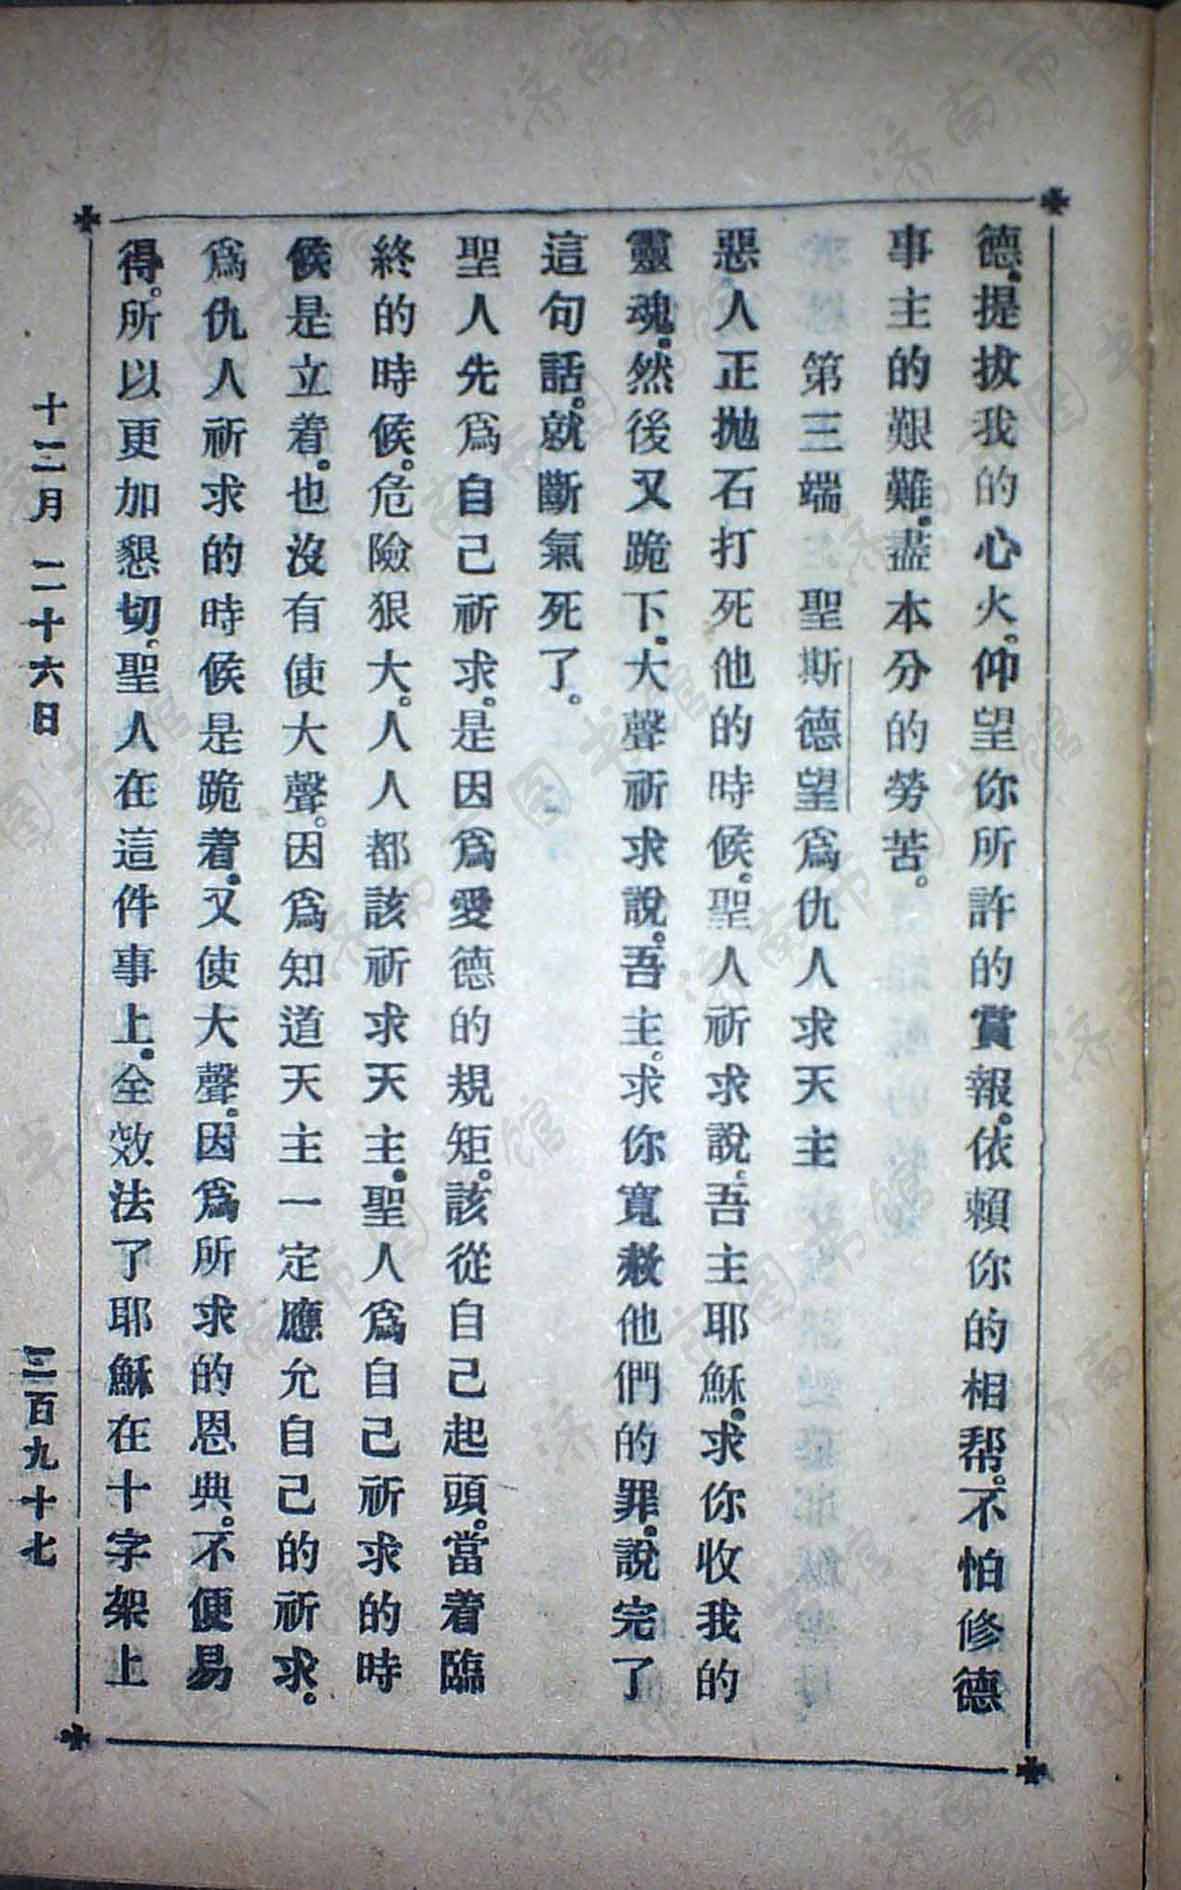 德。提拔我的心火。仰望你所許的賞報。依賴你的相帮。不怕修德
事主的艱難。盡本分的勞苦。
第三端 聖斯德望爲仇人求天主
惡人正抛石打死他的時候。聖人祈求說。吾主耶穌。求你收我的
靈魂。然後又跪下。大聲祈求說。吾主。求你寬赦他們的罪。說完了
這句話。就斷氣死了。
聖人先爲自己祈求。是因爲愛德的規矩。該從自己起頭。當着臨
終的時候。危險狠大。人人都該祈求天主。聖人爲自己祈求的時
候是立着。也沒有使大聲。因爲知道天主一定應允自己的祈求。
爲仇人祈求的時候是跪着。又使大聲。因爲所求的恩典。不便易
得。所以更加懇切。聖人在這件事上。全效法了耶穌在十字架上
十二月 二十六日 三百九十七
济南市图书馆